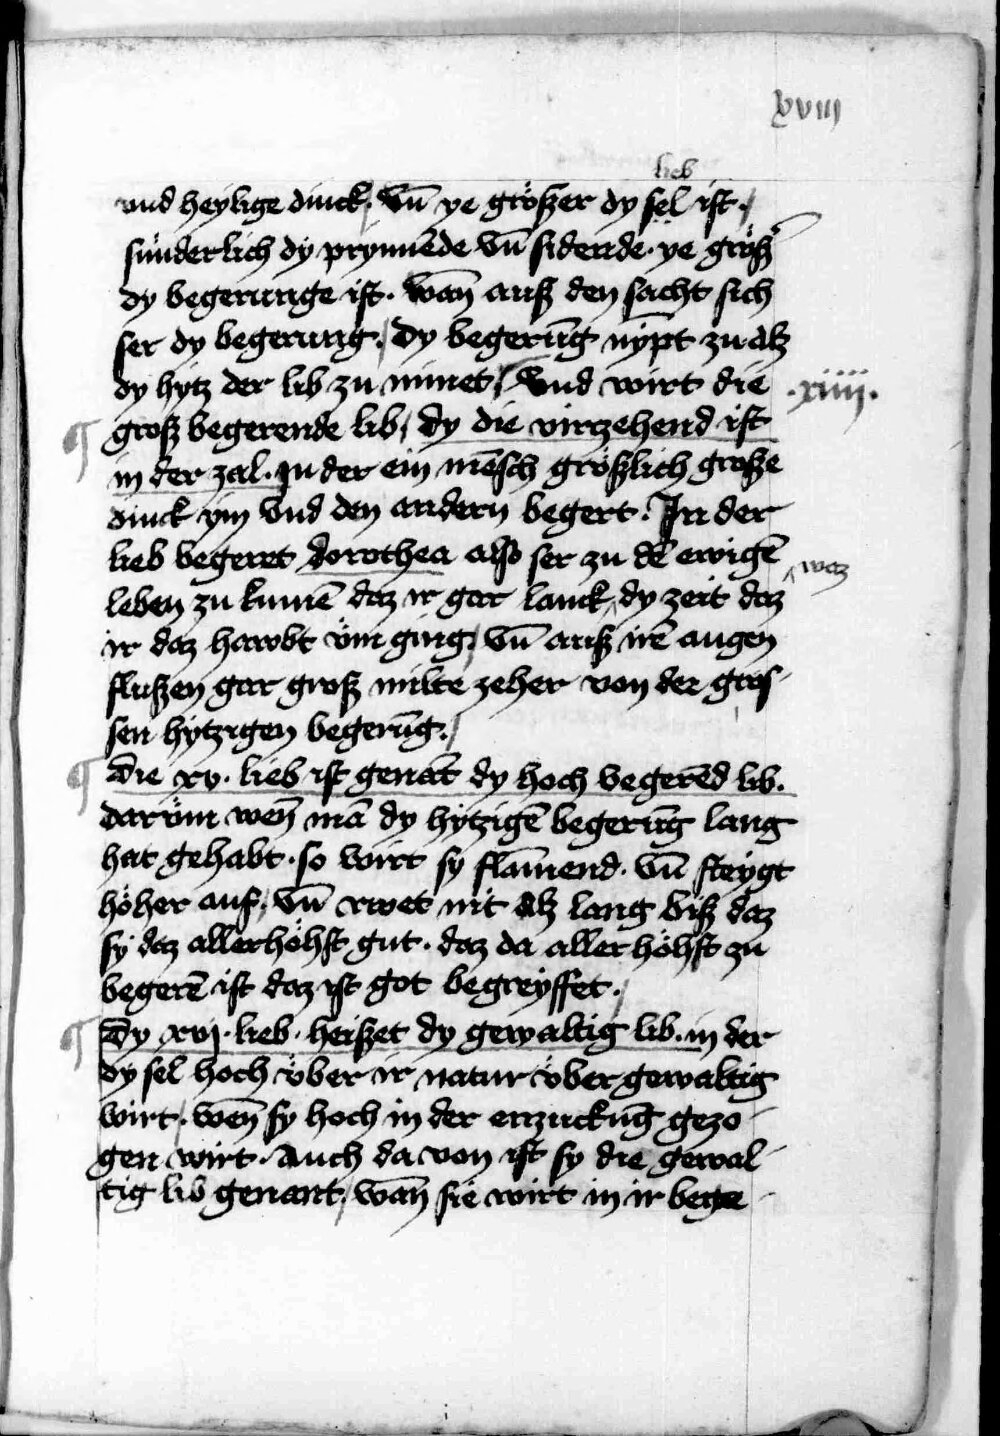 xviii
lieb
und heylige dinck / Vn̄ ye größer dy sel ist /
sünderlich dy prynnēde vn̄ sidende · ye größ
dy begerunge ist · wan̄ auß den sacht sich
ser dy begerung / Dy begerūg nympt zu alz
dy hytz der lib zu nimet / Vnd wirt die
·xiiii·
groß begerende lib / dy die virzehend ist
in der zal · In der ein mēsch größlich große
dinck ym vnd den andern begert · In der
lieb begeret dorothea also ser zu dē ewigē
leben zu kumē daz ir gar lanck ^ dy zeit daz
^ waz
ir daz hawbt üm ging / Vn̄ auß irē augen
flußen gar groß milte zeher von der gros-
sen hytzigen begerūg /
Die xv · lieb ist genāt dy hoch begerēd lib ·
darüm wen̄ mā dy hytzigē begerūg lang
hat gehabt · so wirt sy flāmend · vn̄ steygt
höher auf / Vn̄ rwet nit alz lang biß daz
sy daz allerhöhst gut · daz da aller höhst zu
begerē ist daz ist got begreyffet /
Dy xvj · lieb · heißet dy gewaltig lib · in der
dy sel hoch über ir natur über gewaltig
wirt / wen̄ sy hoch in der enzuckūg gezo-
gen wirt · Auch da von ist sy die gewal-
tig lib genant / wan̄ sie wirt in ir bege-